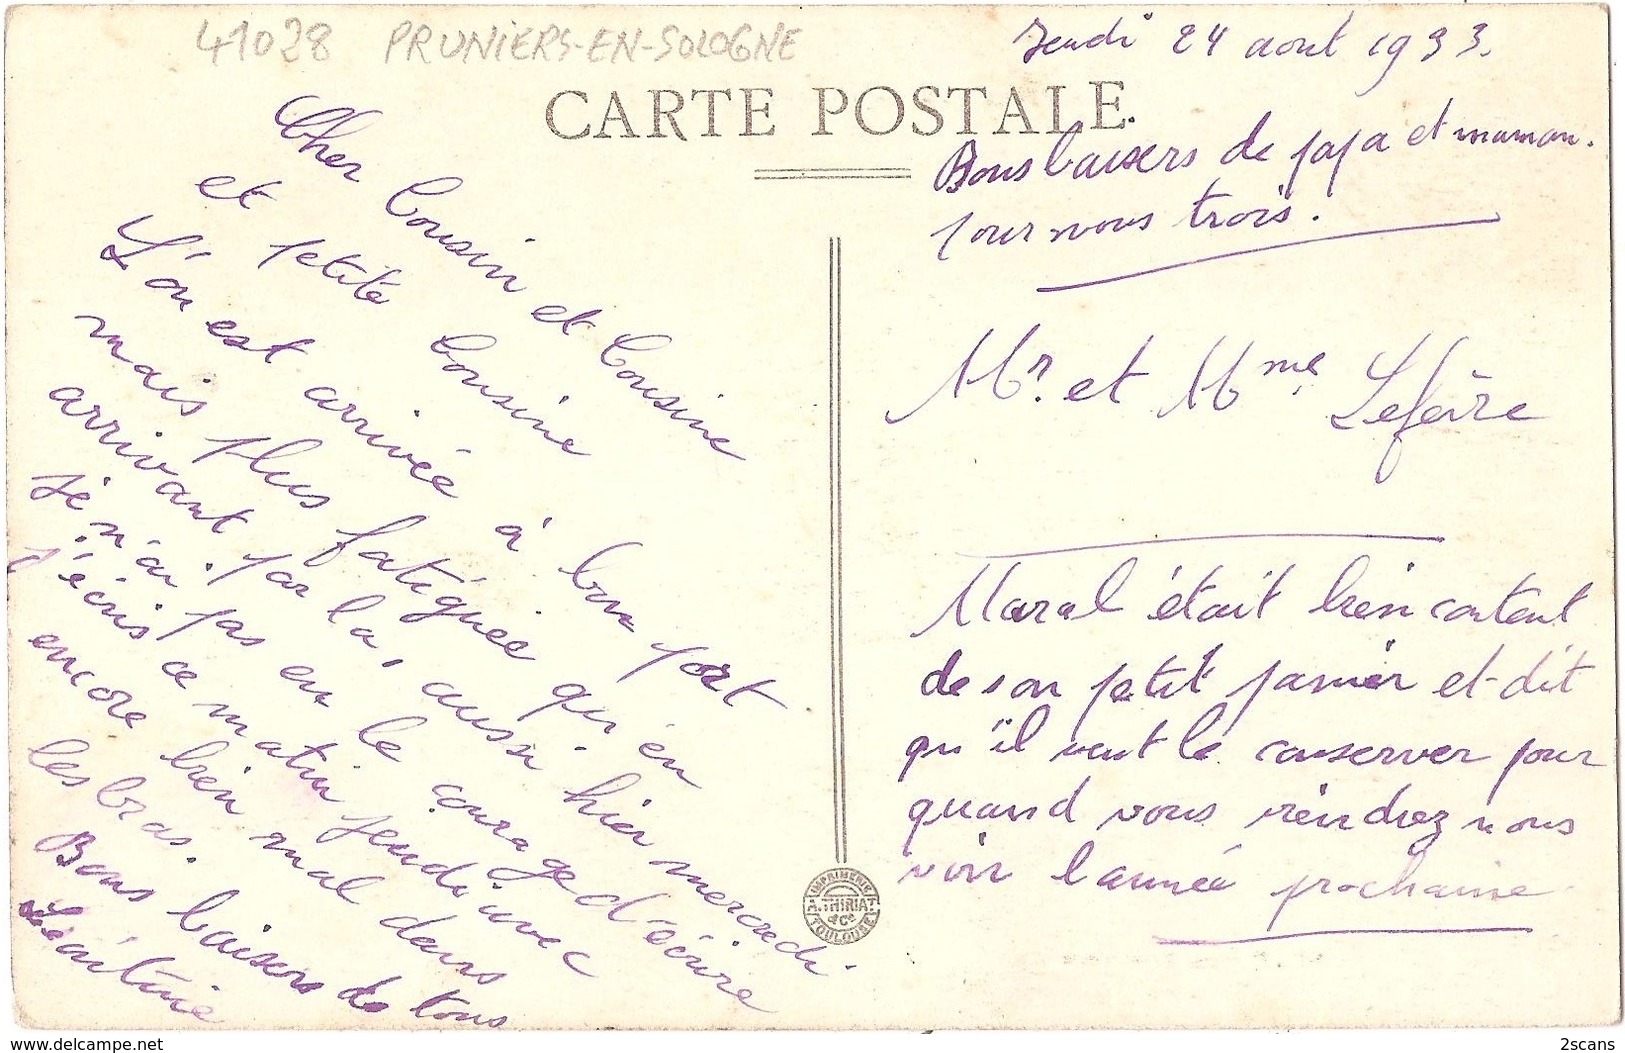 41028 PRUNIERS-EN-SOLOGNE
Jeudi 24 aout 1933.
CARTE POSTALE
Bons baisers de papa et maman.
pour vous trois.
Cher Cousin et Cousine
et petite Cousine
L'on est arrivée à bon port
mais plus fatiguée qu'en
arrivant par la, aussi hier mercredi
je n'ai pas eu le courage d'écrire
j'écris ce matin jeudi avec
encore bien mal dans
les bras.
Bons baisers de tous
Léontine
Mr. et Mme Lefèvre
Marcel était bien content
de son petit panier et dit
qu'il veut le conserver pour
quand vous viendrez nous
voir l'année prochaine
IMPRIMERIE
A. THIRIAT
& Cie
TOULOUSE
www.delcampe.net
2scans